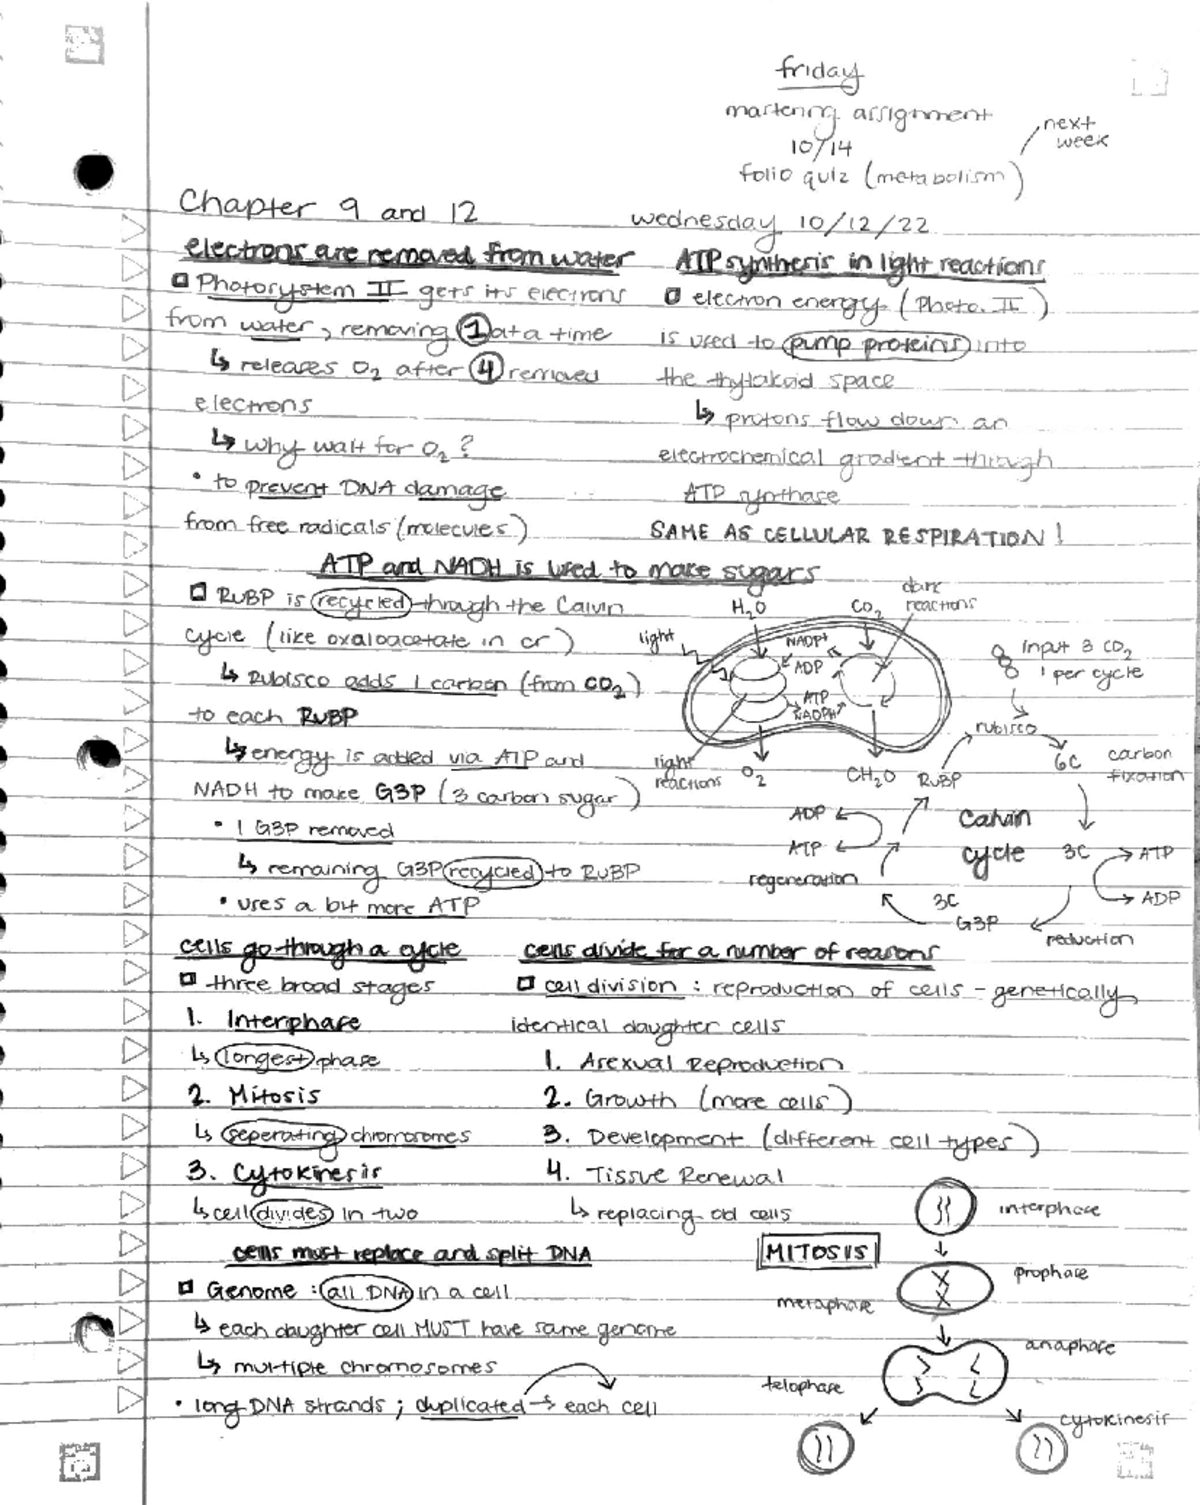 friday
mastering assignment
10/14
folio quiz (metabolism)
next
week
Chapter 9 and 12
wednesday 10/12/22
electrons are removed from water
□ Photosystem II gets its electrons
from water, removing 1 at a time
↳ releases O2 after 4 removed
electrons
↳ why wait for O2?
• to prevent DNA damage
from free radicals (molecules)
ATP synthesis in light reactions
□ electron energy (Photo. II)
is used to pump proteins into
the thylakoid space
↳ protons flow down an
electrochemical gradient through
ATP synthase
SAME AS CELLULAR RESPIRATION!
ATP and NADH is used to make sugars
□ RuBP is recycled through the Calvin
cycle (like oxaloacetate in cr)
↳ Rubisco adds 1 carbon (from CO2)
to each RuBP
↳ energy is added via ATP and
NADH to make G3P (3 carbon sugar)
• 1 G3P removed
↳ remaining G3P recycled to RuBP
• uses a bit more ATP
light
H2O
CO2
dark
reactions
NADP+
ADP
ATP
NADPH
light
reactions
O2
CH2O
input 3 CO2
1 per cycle
rubisco
RuBP
6C
carbon
fixation
Calvin
cycle
3C
ATP
ADP
reduction
3C
G3P
regeneration
ADP
ATP
cells go through a cycle
□ three broad stages
1. Interphase
↳ longest phase
2. Mitosis
↳ seperating chromosomes
3. Cytokinesis
↳ cell divides in two
cells divide for a number of reasons
□ cell division: reproduction of cells - genetically
identical daughter cells
1. Asexual Reproduction
2. Growth (more cells)
3. Development (different cell types)
4. Tissue Renewal
↳ replacing old cells
cells must replace and split DNA
□ Genome: all DNA in a cell
↳ each daughter cell MUST have same genome
↳ multiple chromosomes
• long DNA strands; duplicated → each cell
MITOSIS
interphase
prophase
metaphase
anaphase
telophase
cytokinesis